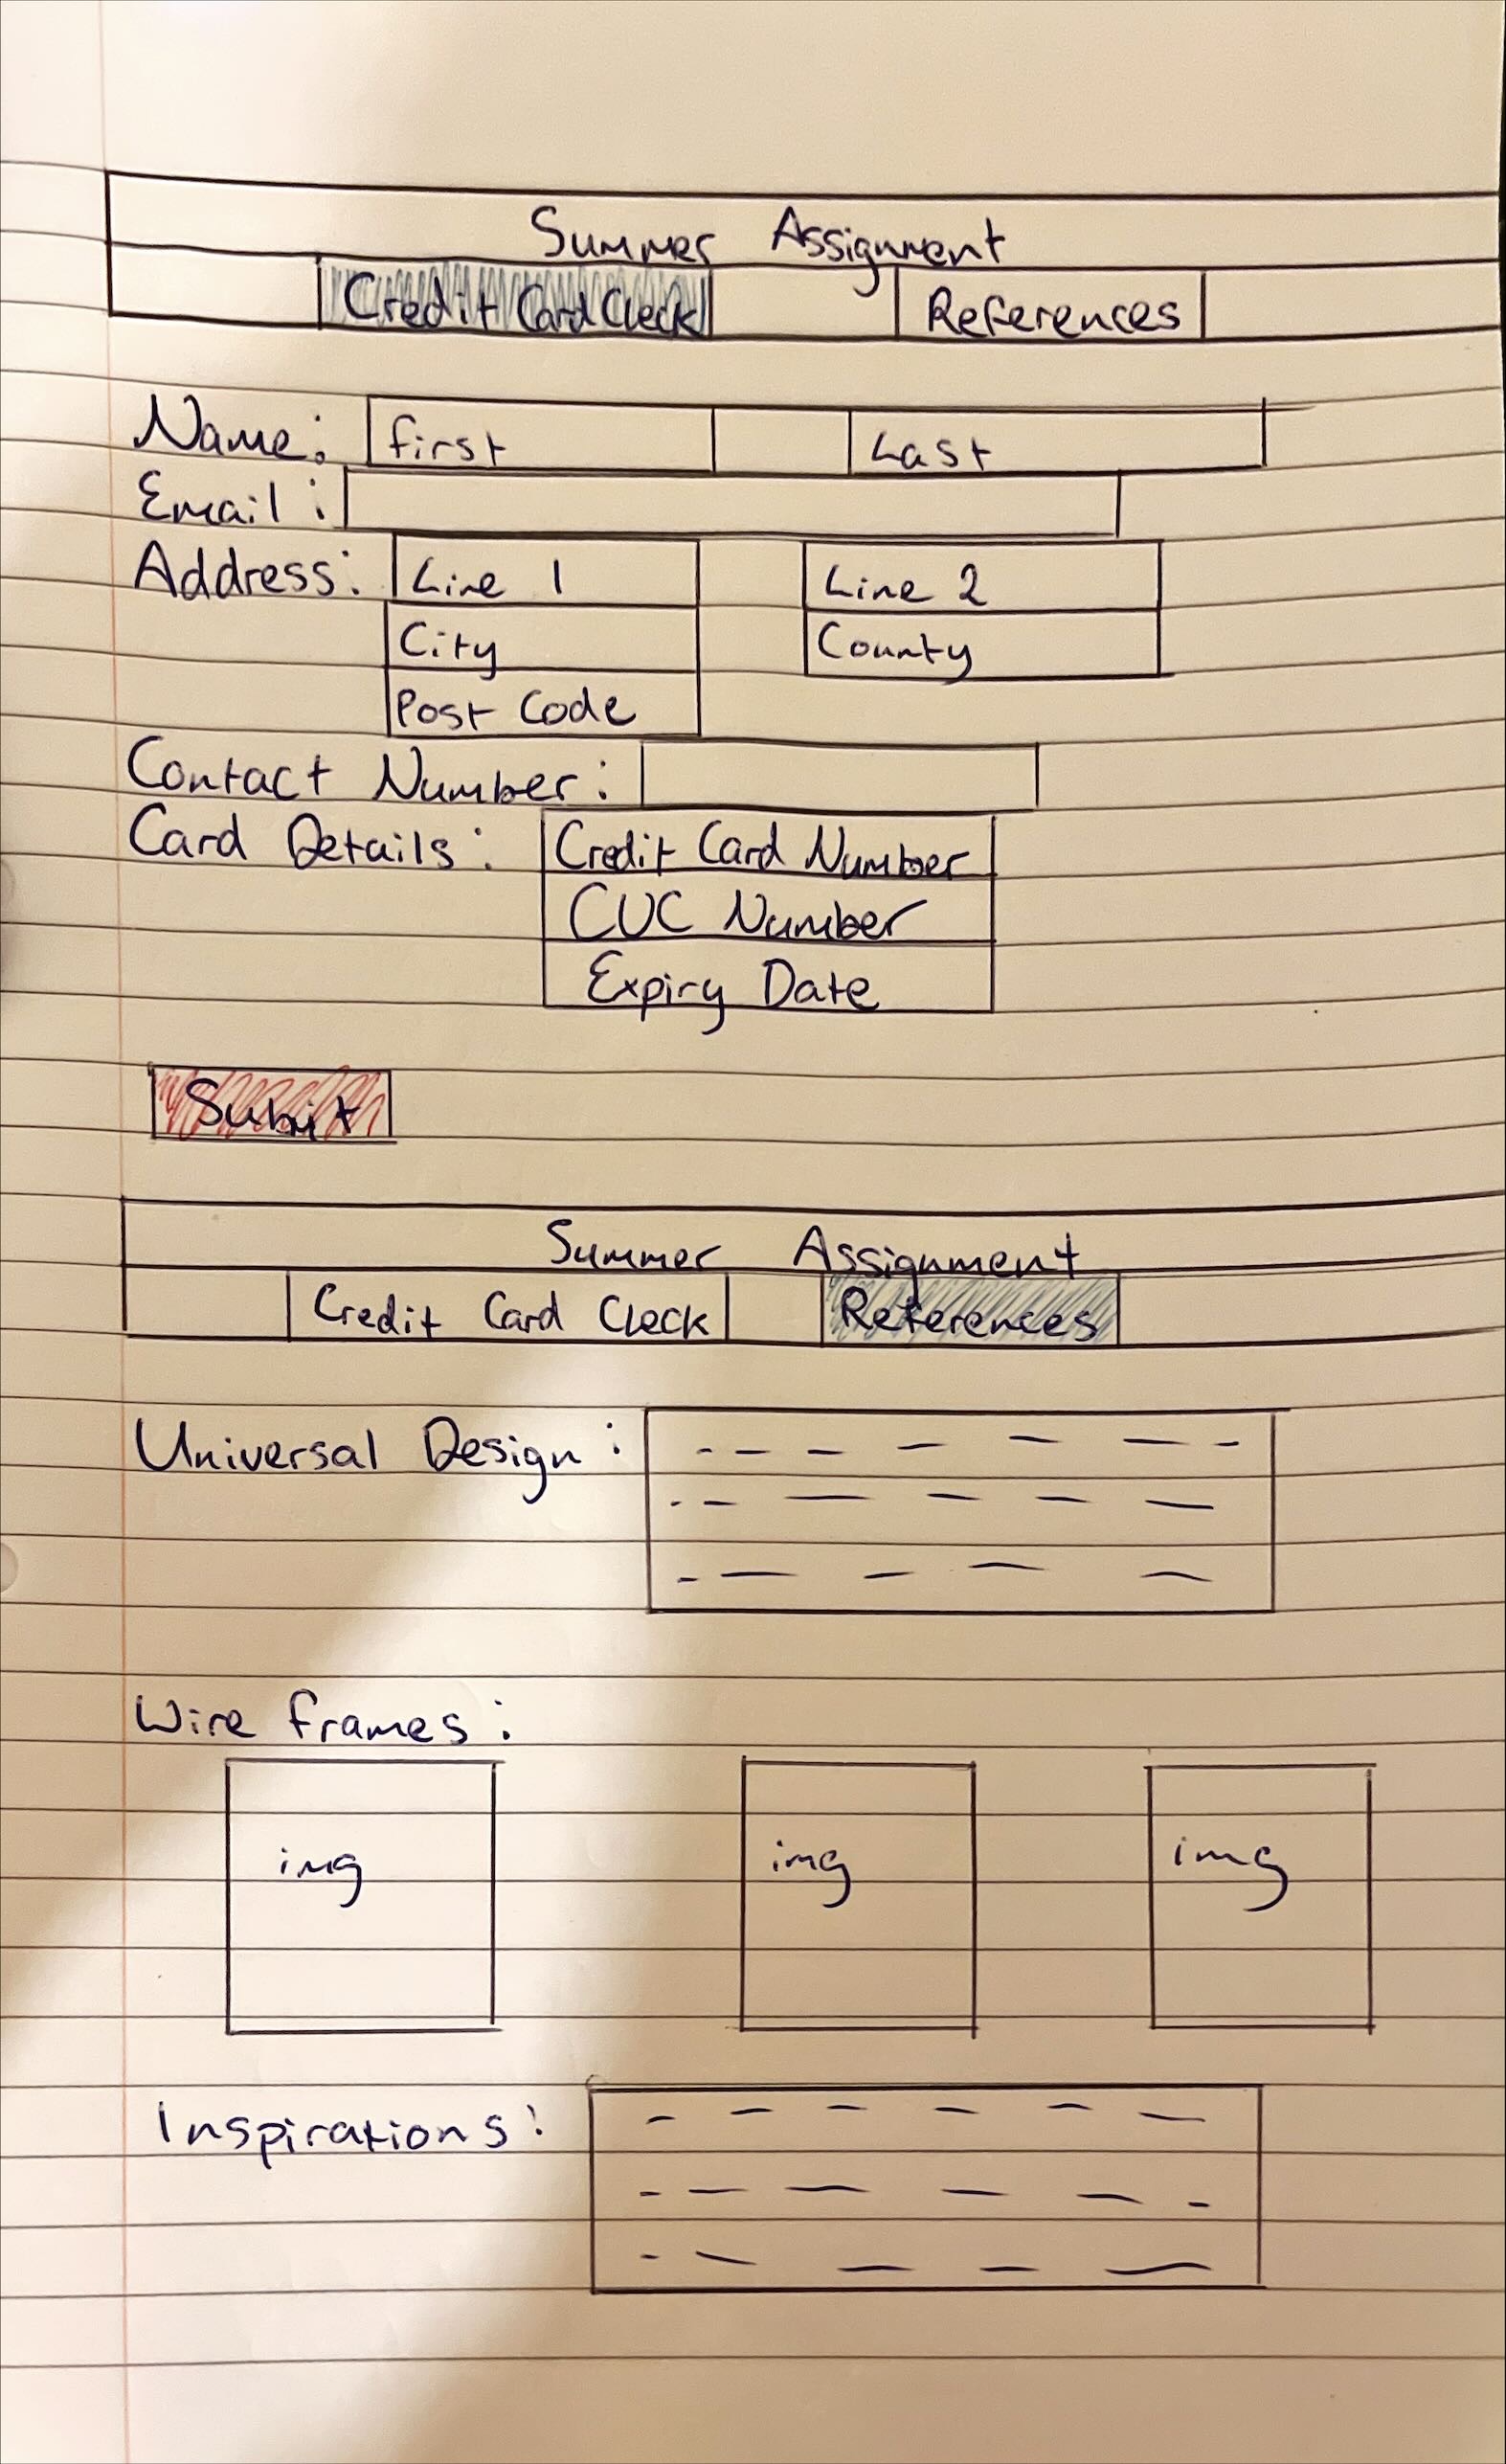 Summer Assignment
Credit Card Check References
Name: first Last
Email:
Address: Line 1 Line 2
City County
Post Code
Contact Number:
Card Details: Credit Card Number
CVC Number
Expiry Date
Submit
Summer Assignment
Credit Card Check References
Universal Design:
Wire frames:
img img img
Inspirations: